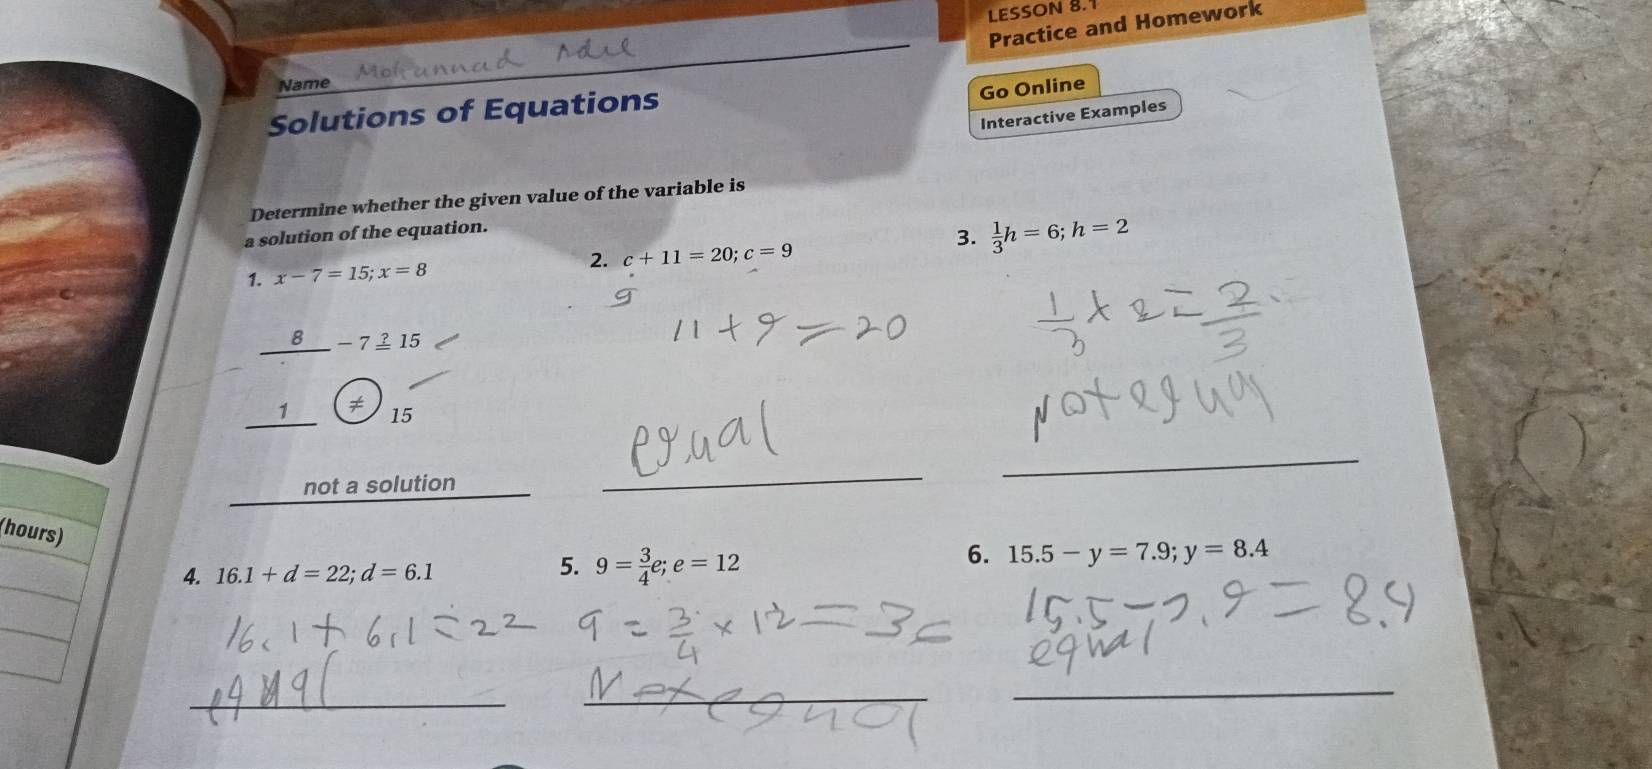 LESSON 8.1
Practice and Homework
Name Mohannad Adel
Solutions of Equations
Go Online
Interactive Examples
Determine whether the given value of the variable is
a solution of the equation.
1. x − 7 = 15; x = 8
2. c + 11 = 20; c = 9
3. 1/3 h = 6; h = 2
9
8 − 7 ≟ 15
11 + 9 = 20
1/3 × 2 = 2/3
1 ≠ 15
equal
Not equal
not a solution
(hours)
4. 16.1 + d = 22; d = 6.1
5. 9 = 3/4 e; e = 12
6. 15.5 − y = 7.9; y = 8.4
16.1 + 6.1 = 22
9 = 3/4 × 12 =
15.5 − 7.9 = 8.4
equal
Not equal
equal